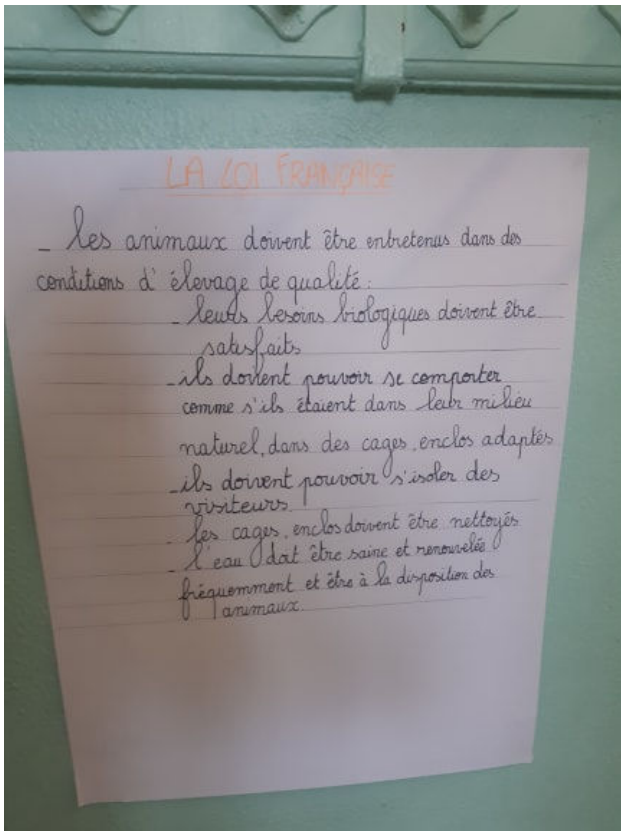 LA LOI FRANÇAISE
- les animaux doivent être entretenus dans des
conditions d'élevage de qualité :
- leurs besoins biologiques doivent être
satisfaits
- ils doivent pouvoir se comporter
comme s'ils étaient dans leur milieu
naturel, dans des cages, enclos adaptés
- ils doivent pouvoir s'isoler des
visiteurs.
- les cages, enclos doivent être nettoyés
- l'eau doit être saine et renouvelée
fréquemment et être à la disposition des
animaux